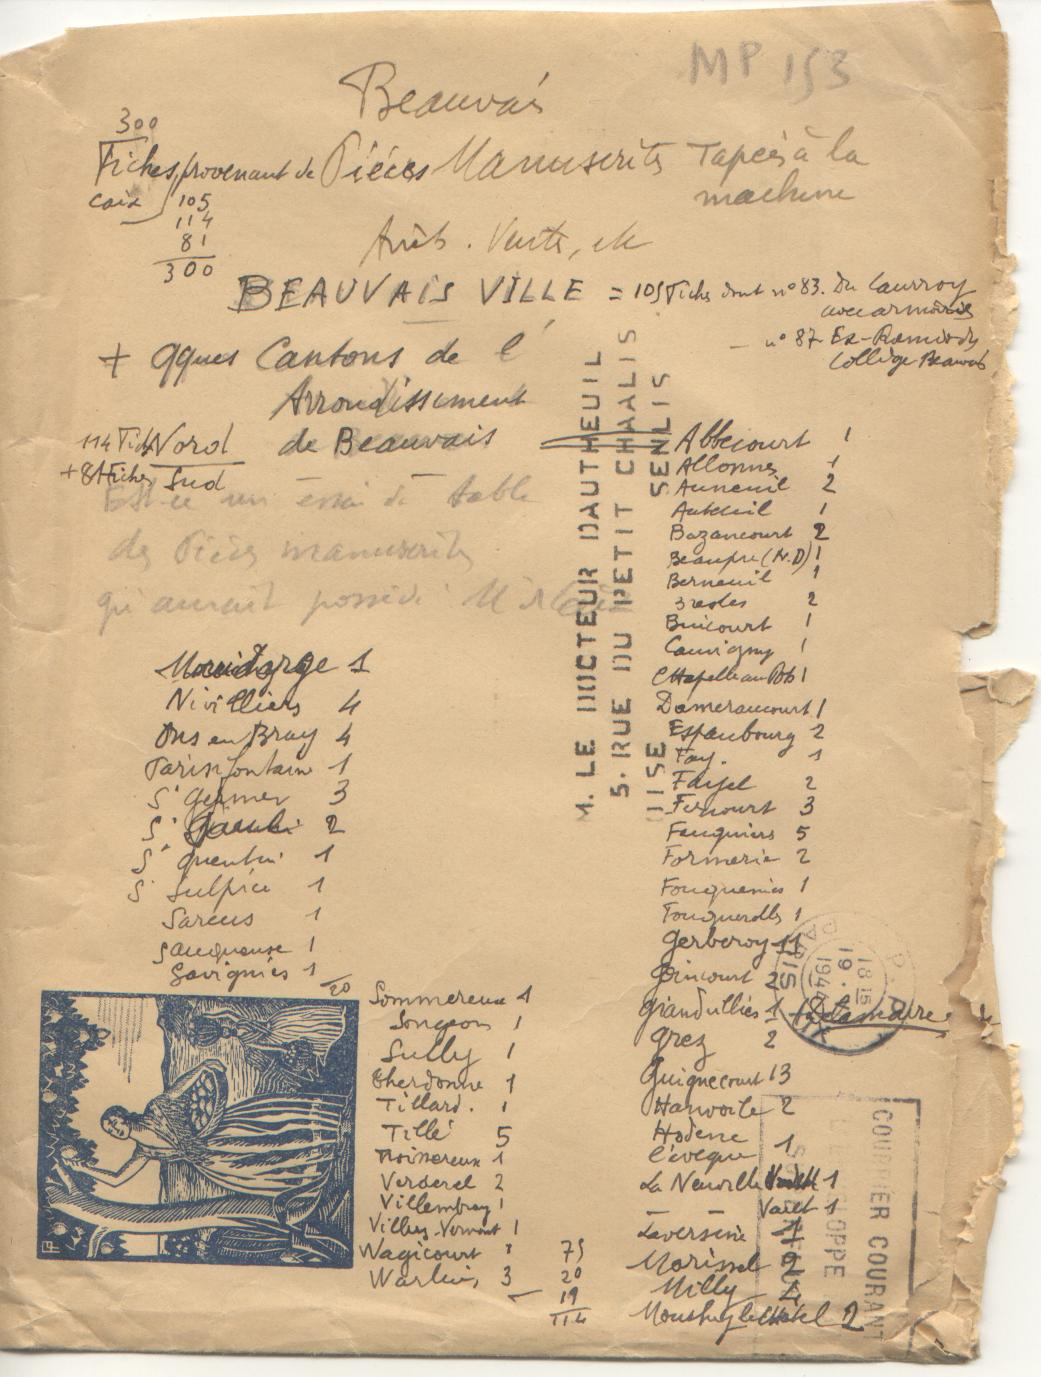 MP 153
Beauvais
300
Fiches provenant de Pièces Manuscrits Tapées à la
machine
105
114
81
300
Vente, etc
BEAUVAIS VILLE = 105 Fiches dont n° 83. Du Caurroy
avec armoiries
n° 87. Ex-
Collège Beauvais
+ qques Cantons de l'
Arrondissement
de Beauvais
114 Fich Nord
+ 81 Fiches Sud
Est-ce un essai de table
des Pièces manuscrites
qu'aurait possédé
M. LE DOCTEUR DAUTHEUIL
5. RUE DU PETIT CHAALIS
SENLIS
OISE
Abbecourt 1
Allonnes 1
Auneuil 2
Auteuil 1
Bazancourt 2
Beaupre (N.D) 1
Berneuil 1
Bresles 2
Buicourt 1
Cauvigny 1
Chapelle aux Pots 1
Dameraucourt 1
Espaubourg 2
Fay. 1
Fayel 2
Fercourt 3
Feuquieres 5
Formerie 2
Fouquenies 1
Fouquerolles 1
Gerberoy 11
Goincourt 2
Grandvilliers 1 Delamarre
Grez 2
Guignecourt 13
Hanvoile 2
Hodenc
l'eveque 1
La Neuville Vault 1
— — Varet 1
Laversine 1
Morissel 2
Milly 4
Mouchy le Chatel 2
1
Nivilliers 4
Ons en Bray 4
Parisifontaine 1
St Germer 3
St 2
St Quentin 1
St Sulpice 1
Sarcus 1
Sauqueuse 1
Savignies 1
20
Sommereux 1
Songeons 1
Sully 1
Therdonne 1
Tillard. 1
Tillé 5
Troissereux 1
Verderel 2
Villembray 1
Villers-Vermont 1
Wagicourt 1
Warluis 3
75
20
19
114
PARIS
18 15
19.
1944
COURRIER COURANT